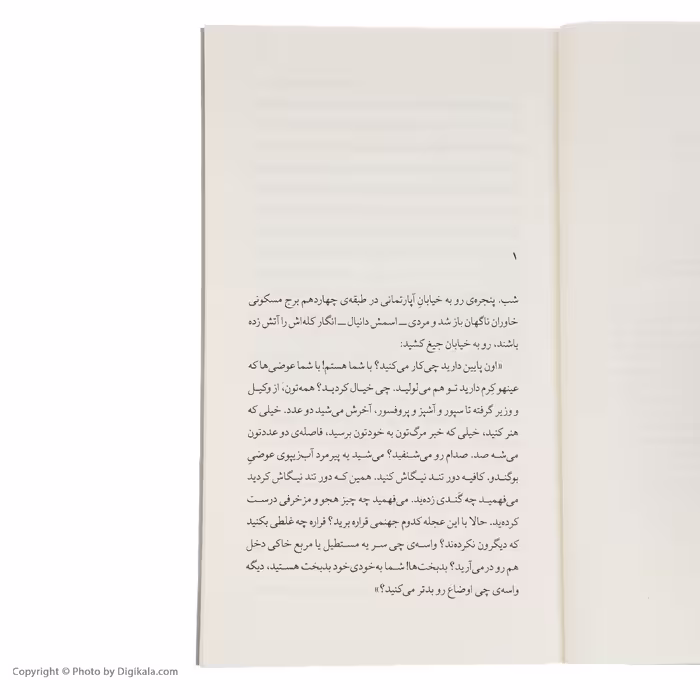 ۱
شب. پنجره‌ی رو به خیابانِ آپارتمانی در طبقه‌ی چهاردهم برج مسکونی
خاوران ناگهان باز شد و مردی ــ اسمش دانیال ــ انگار کله‌اش را آتش زده
باشند، رو به خیابان جیغ کشید:
«اون پایین دارید چی‌کار می‌کنید؟ با شما هستم! با شما عوضی‌ها که
عینهو کرم دارید تو هم می‌لولید. چی خیال کردید؟ همه‌تون، از وکیل
و وزیر گرفته تا سپور و آشپز و پروفسور، آخرش می‌شید دو عدد. خیلی که
هنر کنید، خیلی که خبر مرگ‌تون به خودتون برسید، فاصله‌ی دو عددتون
می‌شه صد. صدام رو می‌شنفید؟ می‌شید یه پیرمرد آب‌زیپوی عوضیِ
بوگندو. کافیه دور تند نیگاش کنید. همین که دور تند نیگاش کردید
می‌فهمید چه گندی زده‌ید. می‌فهمید چه چیز هجو و مزخرفی درست
کرده‌ید. حالا با این عجله کدوم جهنمی قراره برید؟ قراره چه غلطی بکنید
که دیگرون نکرده‌ند؟ واسه‌ی چی سر یه مستطیل یا مربع خاکی دخل
هم رو درمی‌آرید؟ بدبخت‌ها! شما به‌خودی‌خود بدبخت هستید، دیگه
واسه‌ی چی اوضاع رو بدتر می‌کنید؟»
Copyright © Photo by Digikala.com